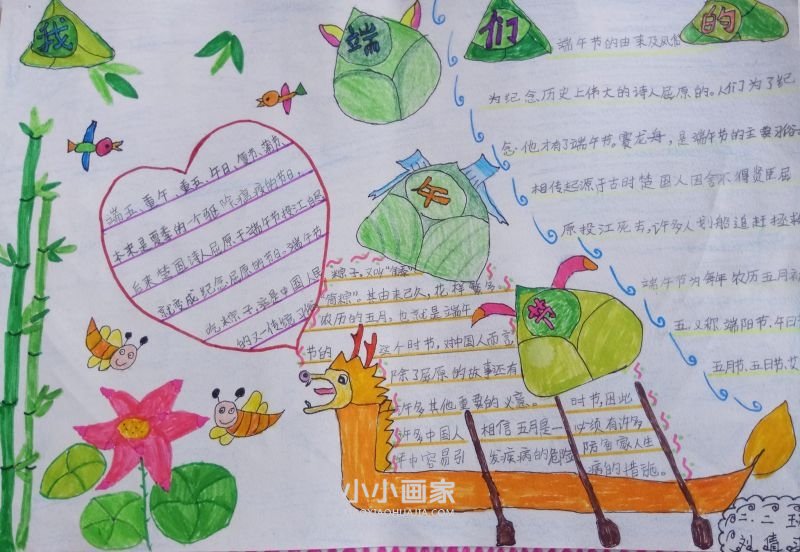 我们的
端午节
端五、重午、重五、午日、夏节、
本来是夏季的一个驱除瘟疫的节日,
后来楚国诗人屈原于端午节投江自尽
就变成纪念屈原的节日。端午节
吃粽子,这是中国人民
的又一传统习俗
粽子,又叫
筒粽”。其由来已久,花样繁多
农历的五月,也就是端午
节的 这个时节,对中国人而言
除了屈原的故事还有
许多其他重要的义意。 时节因此
许多中国人 相信五月是一 必须有许多
年中容易引 发疾病的危险 防备家人生
病的措施。
端午节的由来及风俗
为纪念历史上伟大的诗人屈原的。人们为了纪
念他才有了端午节。赛龙舟,是端午节的主要习俗
相传起源于古时楚国人因舍不得贤臣屈
原投江死去,许多人划船追赶拯救
端午节为每年农历五月初
五,又称端阳节、午日
五月节、五日节、艾
二.二
刘倩
小小画家
XIAOHUAJIA.COM